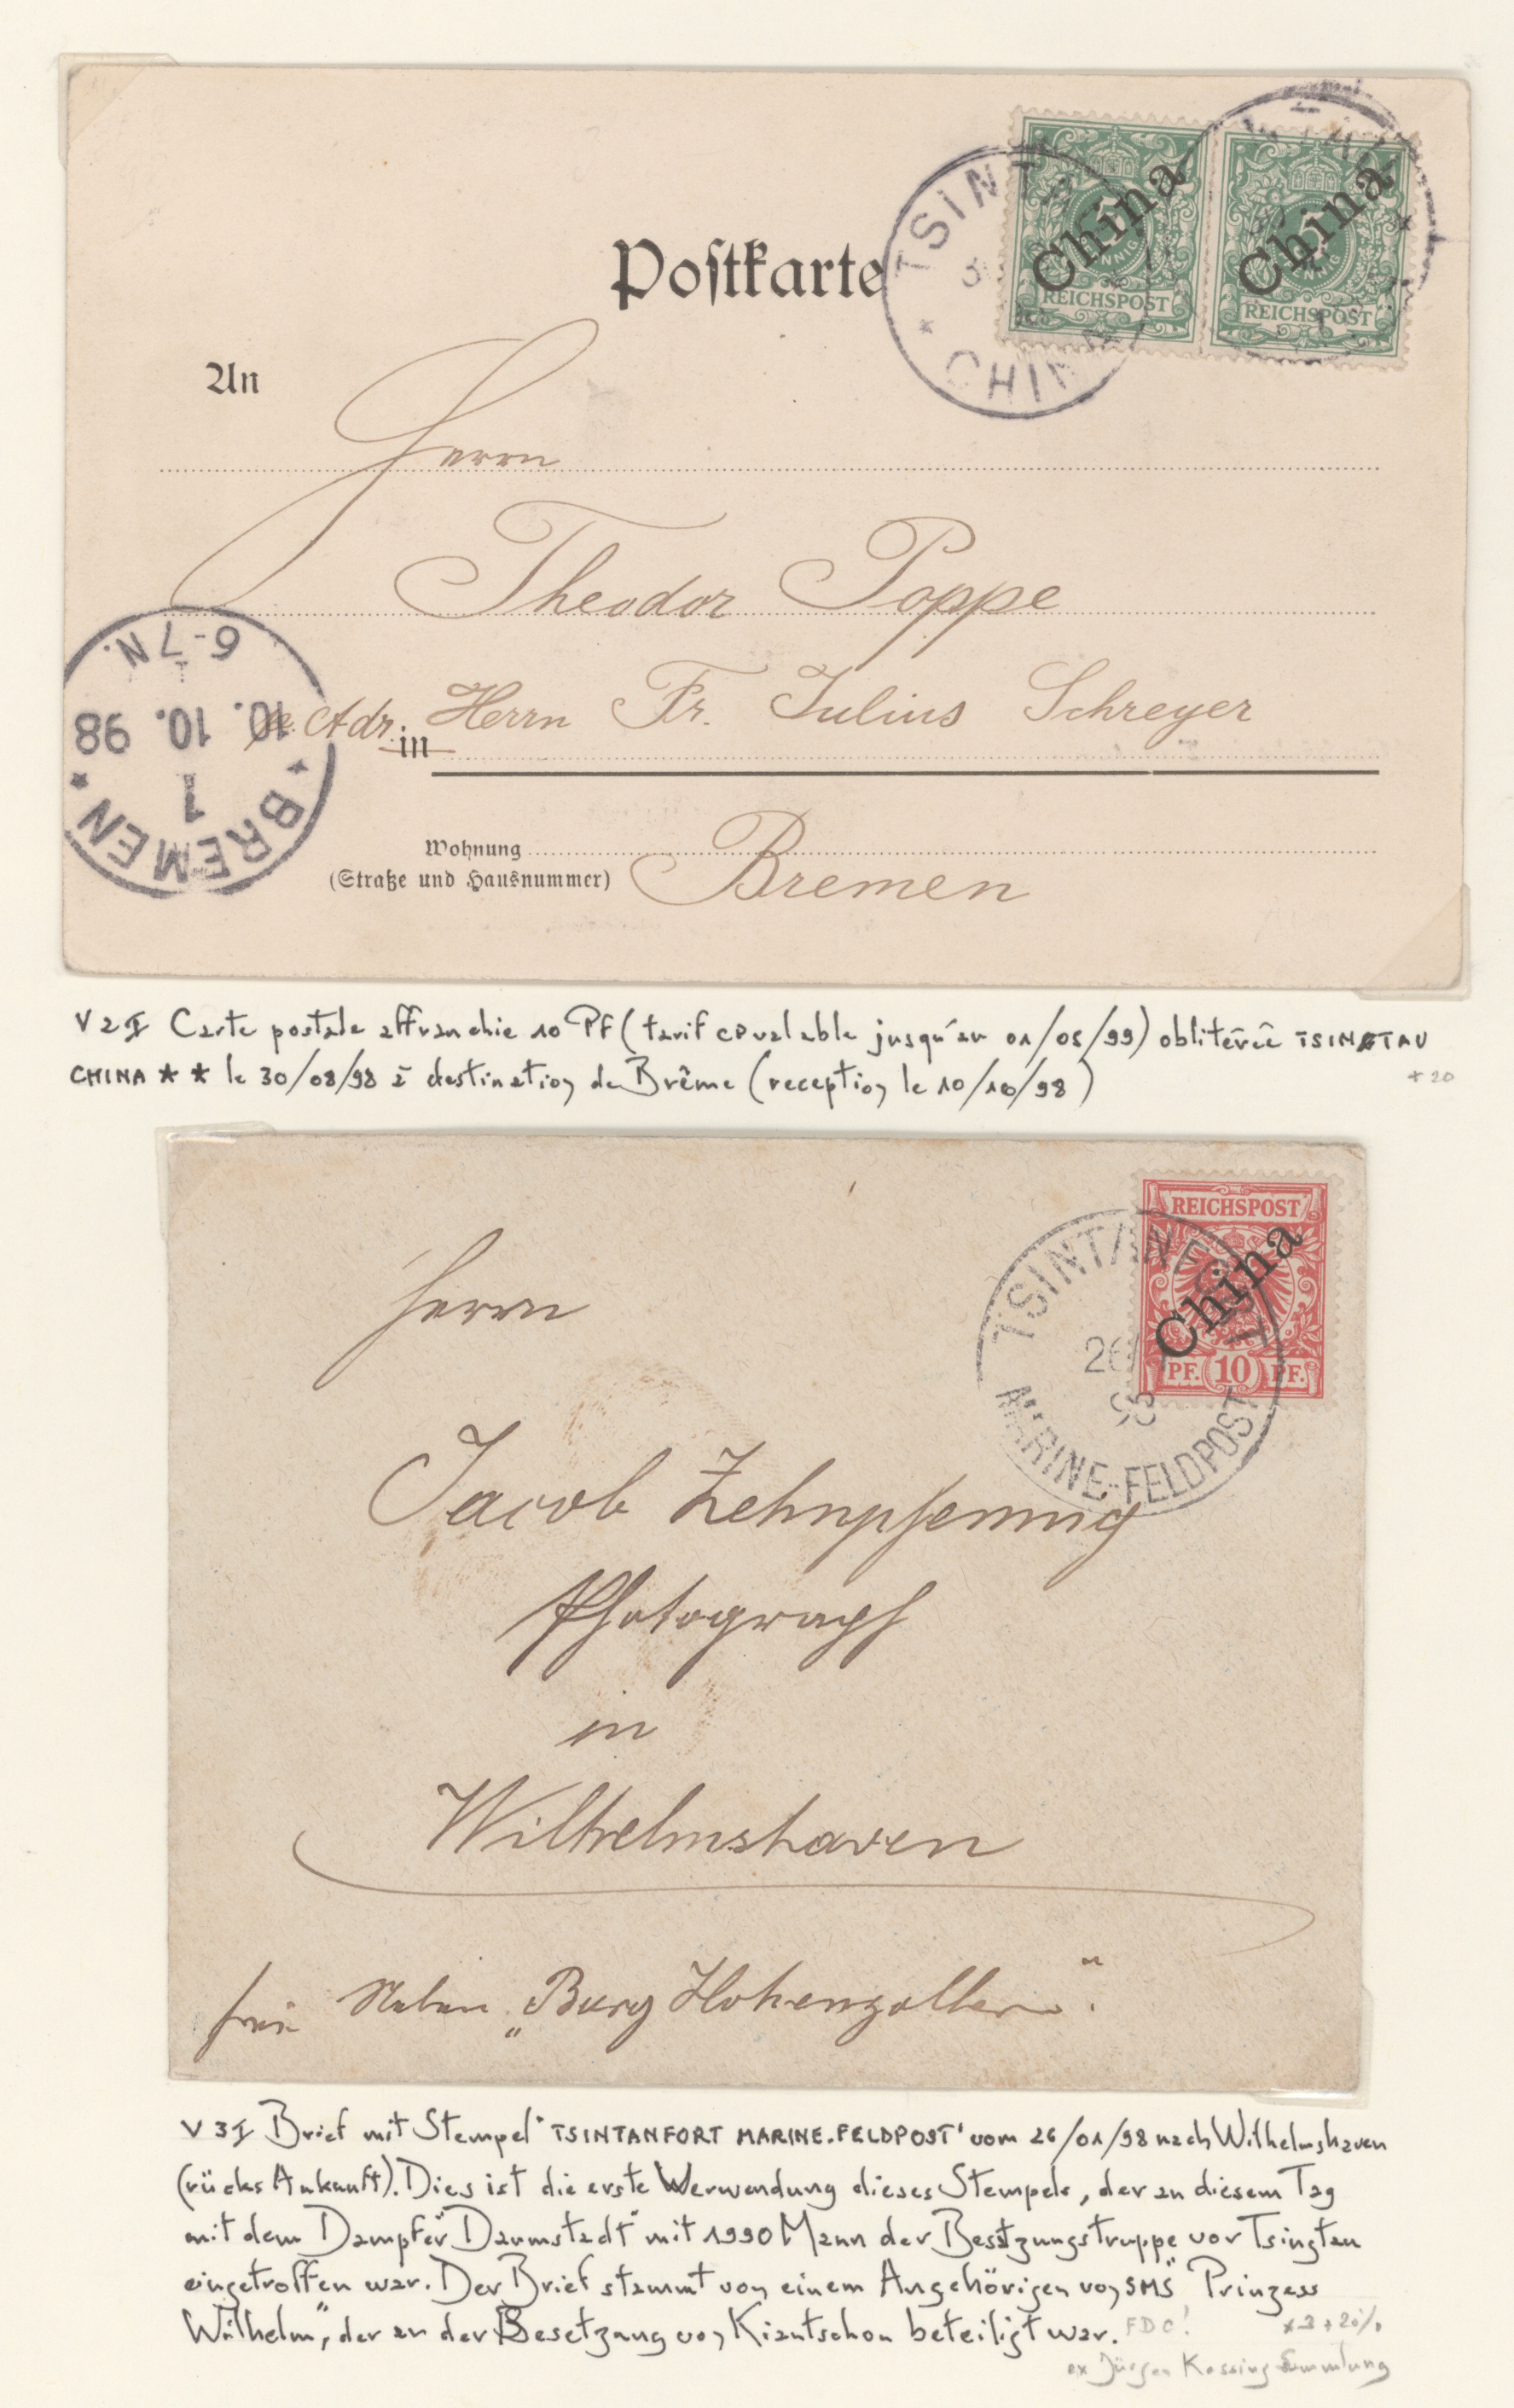 Postkarte
China
China
REICHSPOST
REICHSPOST
TSINTAU
CHINA
An
Herrn
Theodor Poppe
Adr. in Herrn Fr. Julius Schreyer
Wohnung
(Straße und Hausnummer)
Bremen
BREMEN
1
10. 10. 98
6-7N.
V2I Carte postale affranchie 10 PF (tarif CP valable jusqu'au 01/05/99) oblitérée TSINGTAU
CHINA ★ ★ le 30/08/98 à destination de Brême (reception le 10/10/98)
+20
REICHSPOST
China
PF. 10 PF.
TSINTANFORT
26
98
MARINE-FELDPOST
Herrn
Jacob Zehnpfennig
Photograph
in
Wilhelmshaven
„Burg Hohenzollern“.
V3I Brief mit Stempel "TSINTANFORT MARINE-FELDPOST" vom 26/01/98 nach Wilhelmshaven
(rücks Ankunft). Dies ist die erste Verwendung dieses Stempels, der an diesem Tag
mit dem Dampfer "Darmstadt" mit 1990 Mann der Besatzungstruppe vor Tsingtau
eingetroffen war. Der Brief stammt von einem Angehörigen von SMS "Prinzess
Wilhelm", der an der Besetzung von Kiautschou beteiligt war. FDC!
x3+20%
ex Jürgen Kessing Sammlung